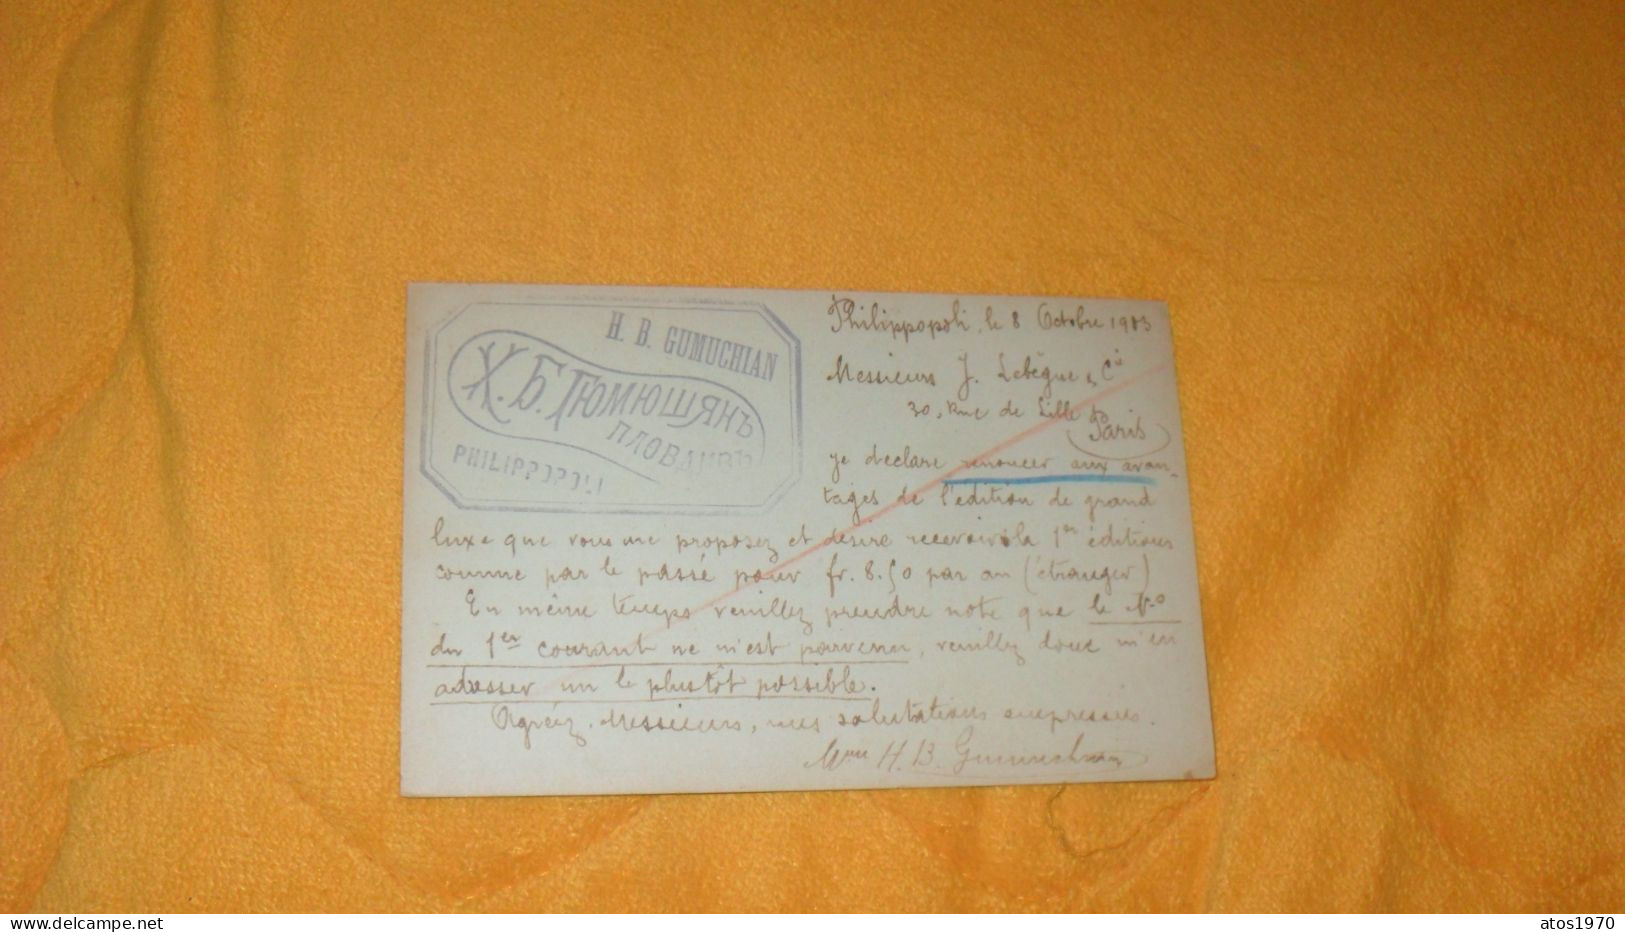 H. B. GUMUCHIAN
Х. Б. ГЮМЮШЯНЪ
ПЛОВДИВЪ
PHILIPPOPOLI
Philippopoli, le 8 Octobre 1903
Messieurs J. Lebègue & Cie
30, Rue de Lille
Paris
je declare renoncer aux avan-
tages de l'édition de grand
luxe que vous me proposez et désire recevoir la 1er éditions
comme par le passé pour fr. 8.50 par an (étranger)
En même temps veuillez prendre note que le No
du 1er courant ne m'est parvenu, veuillez donc m'en
adresser un le plustôt possible.
Agréez, Messieurs, mes salutations empressées.
Mme H. B. Gumuchian
www.delcampe.net
atos1970